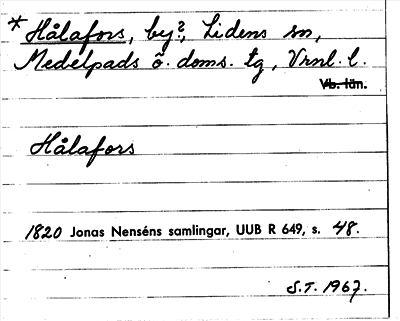 * Hålafors, by?, Lidens sn,
Medelpads ö. doms. tg, Vrnl. l.
Vb. län.
Hålafors
1820 Jonas Nenséns samlingar, UUB R 649, s. 48.
S.T. 1967.